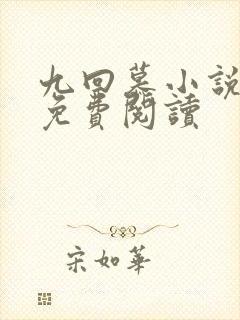 九回墓小說
免費閱讀
宋如華